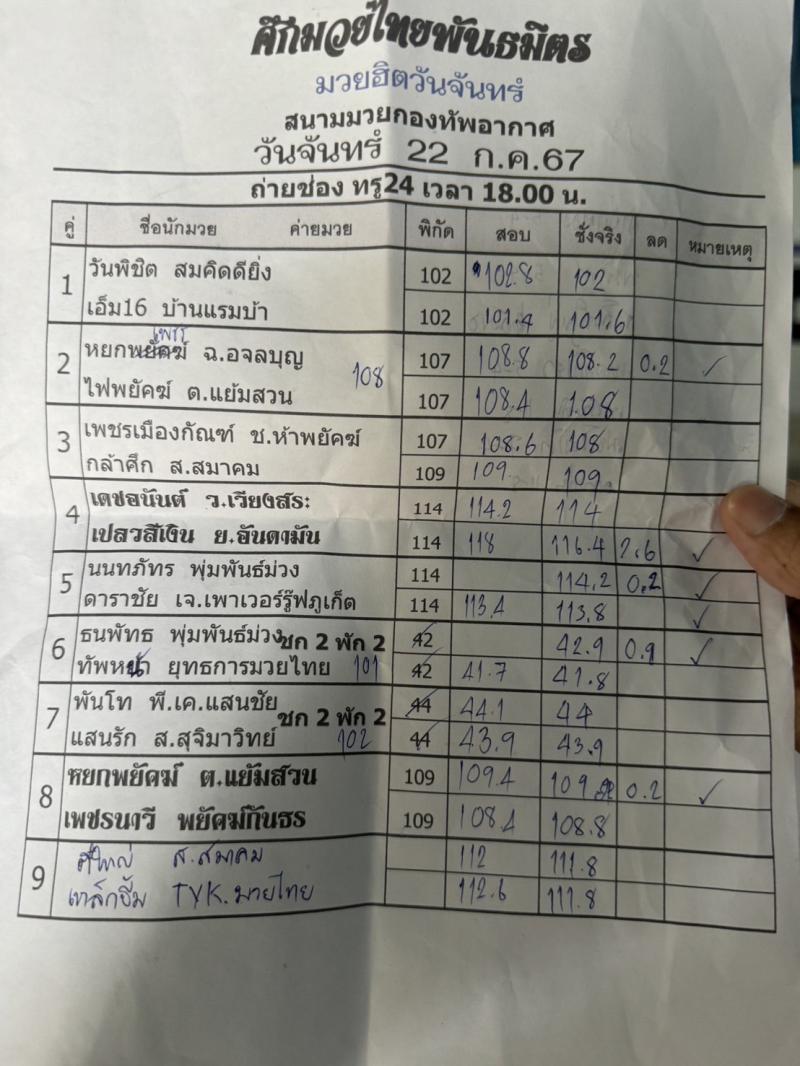 ศึกมวยไทยพันธมิตร
มวยฮิตวันจันทร์
สนามมวยกองทัพอากาศ
วันจันทร์ 22 ก.ค.67
ถ่ายช่อง ทรู24 เวลา 18.00 น.
คู่ ชื่อนักมวย ค่ายมวย พิกัด สอบ ชั่งจริง ลด หมายเหตุ
1 วันพิชิต สมคิดดียิ่ง 102 102.8 102
เอ็ม16 บ้านแรมบ้า 102 101.4 101.6
เพชร
2 หยกพยัคฆ์ ฉ.อจลบุญ 107 108.8 108.2 0.2 ✓
ไฟพยัคฆ์ ต.แย้มสวน 108 107 108.4 108
3 เพชรเมืองกัณฑ์ ช.ห้าพยัคฆ์ 107 108.6 108
กล้าศึก ส.สมาคม 109 109 109
4 เดชอนันต์ ว.เวียงสระ 114 114.2 114
เปลวสีเงิน ย.อันดามัน 114 118 116.4 2.6 ✓
5 นนทภัทร พุ่มพันธ์ม่วง 114 114.2 0.2 ✓
ดาราชัย เจ.เพาเวอร์รู๊ฟภูเก็ต 114 113.4 113.8 ✓
6 ธนพัทธ พุ่มพันธ์ม่วง ชก 2 พัก 2 42 42.9 0.9 ✓
ทัพหน้า ยุทธการมวยไทย 101 42 41.7 41.8
7 พันโท พี.เค.แสนชัย ชก 2 พัก 2 44 44.1 44
แสนรัก ส.สุจิมาวิทย์ 102 44 43.9 43.9
8 หยกพยัคฆ์ ต.แย้มสวน 109 109.4 109 0.2 ✓
เพชรนาวี พยัคฆ์กันธร 109 108.4 108.8
9 ศึใหญ่ ส.สมาคม 112 111.8
TYK.มวยไทย 112.6 111.8